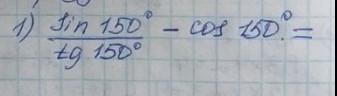 1) sin 150° / tg 150° - cos 150° =